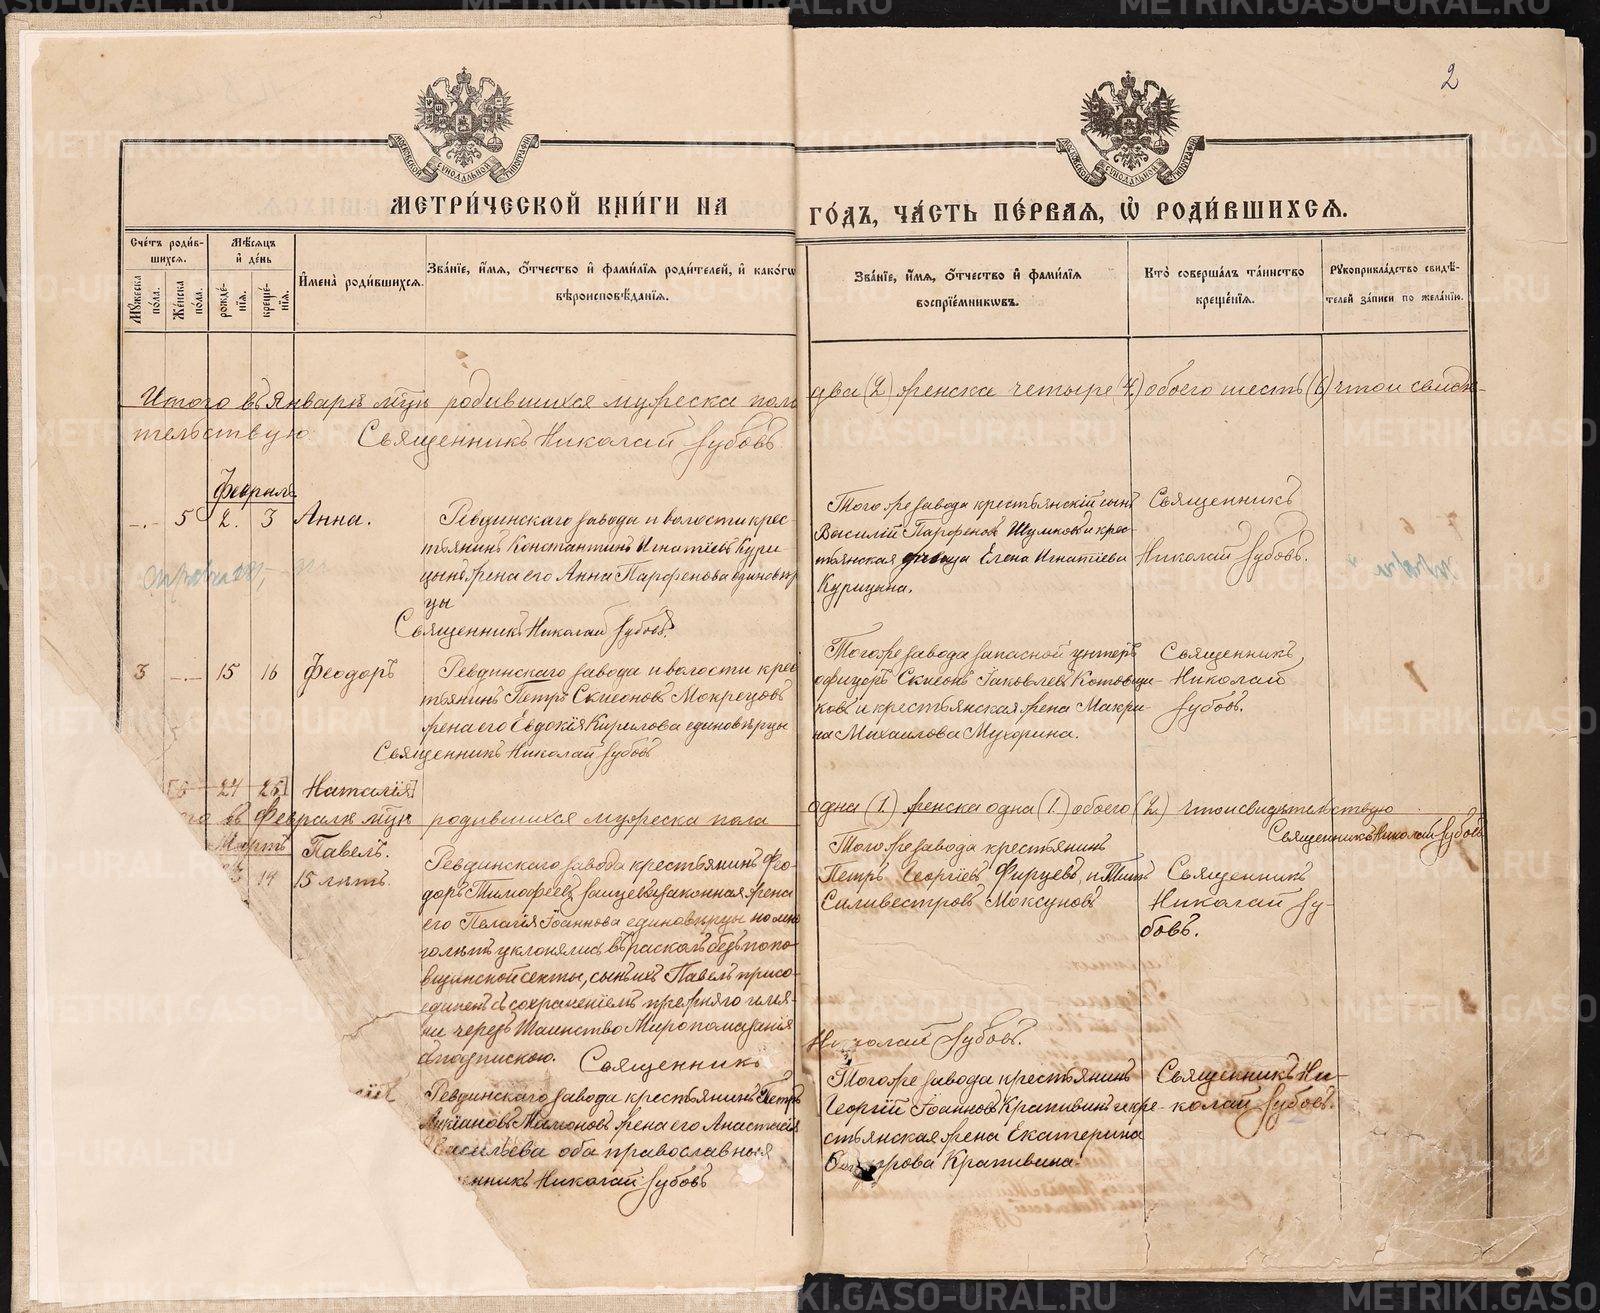 2
МОСКОВСКОЙ СѴНОДАЛЬНОЙ ТИПОГРАФІИ
МОСКОВСКОЙ СѴНОДАЛЬНОЙ ТИПОГРАФІИ
МЕТРИ́ЧЕСКОЙ КНИ́ГИ НА
ГО́ДЪ, ЧА́СТЬ ПЕ́РВАѦ, Ѡ҆ РОДИ́ВШИХСѦ.
Сче́тъ роди́в-
шихсѧ.
Мѣ́сѧцъ
и҆ де́нь
Мꙋ́жеска по́ла.
Же́нска по́ла.
рожде́-
нїѧ.
креще́-
нїѧ.
И҆мена̀ роди́вшихсѧ.
Зва́нїе, и҆́мѧ, ѻ҆́тчество и҆ фами́лїѧ роди́телей, и҆ како́гѡ
вѣроисповѣ́данїѧ.
Зва́нїе, и҆́мѧ, ѻ҆́тчество и҆ фами́лїѧ
воспрїе́мникѡвъ.
Кто̀ соверша́лъ та́инство
креще́нїѧ.
Рꙋкоприкла́дство свидѣ́-
телей за́писи по жела́нїю.
Итого въ Январѣ мцѣ родившихся мужеска пола
два (2) женска четыре (4.) обоего шесть (6) что и свидѣ-
тельствую Священникъ Николай Зубовъ
Февраль
5 2. 3 Анна.
Ревдинскаго завода и волости крес-
тьянинъ Константинъ Игнатіевъ Кури-
цынъ жена его Анна Парфенова единовѣр
цы
Священникъ Николай Зубовъ.
Того же завода крестьянскій сынъ
Василій Парфеновъ Шумковъ и крес-
тьянская девица Елена Игнатіева
Курицына.
Священникъ
Николай Зубовъ.
3 15 16 Феодоръ
Ревдинскаго завода и волости крес
тьянинъ Петръ Симеоновъ Мокрецовъ
жена его Евдокія Кирилова единовѣрцы
Священникъ Николай Зубовъ
Того же завода запасной унтеръ
офицеръ Симеонъ Іаковлевъ Котовщи-
ковъ и крестьянская жена Макри-
на Михаилова Мухорина.
Священникъ
Николай
Зубовъ.
[6 24 25] Наталія]
въ Февралѣ мцѣ родившихся мужеска пола
одна (1.) женска одна (1.) обоего (2.) что и свидѣтельствую
Священникъ Николай Зубовъ
Мартъ
14
Павелъ.
15 лѣтъ.
Ревдинскаго завода крестьянинъ Фео-
доръ Тимофеевъ законная жена
его Пелагія Іоаннова единовѣрцы но мно
голѣтъ уклонялись въ расколъ безпопо-
вщинской секты, сынъ ихъ Павелъ присо-
единенъ съ сохраненіемъ прежняго имя-
ни черезъ Таинство Миропомазанія
съ подпискою. Священникъ
Николай Зубовъ.
Того же завода крестьянинъ
Петръ Георгіевъ Фирцевъ и Титъ
Силивестровъ Моксуновъ
Священникъ
Николай Зу-
бовъ.
Ревдинскаго завода крестьянинъ Петръ
Лукіановъ Мамоновъ жена его Анастасія
Васильева оба православныя
енникъ Николай Зубовъ
Того же завода крестьянинъ
Георгій Іоанновъ Крапивинъ и кре-
стьянская жена Екатерина
Крапивина.
Священникъ Ни-
колай Зубовъ.
METRIKI.GASO-URAL.RU